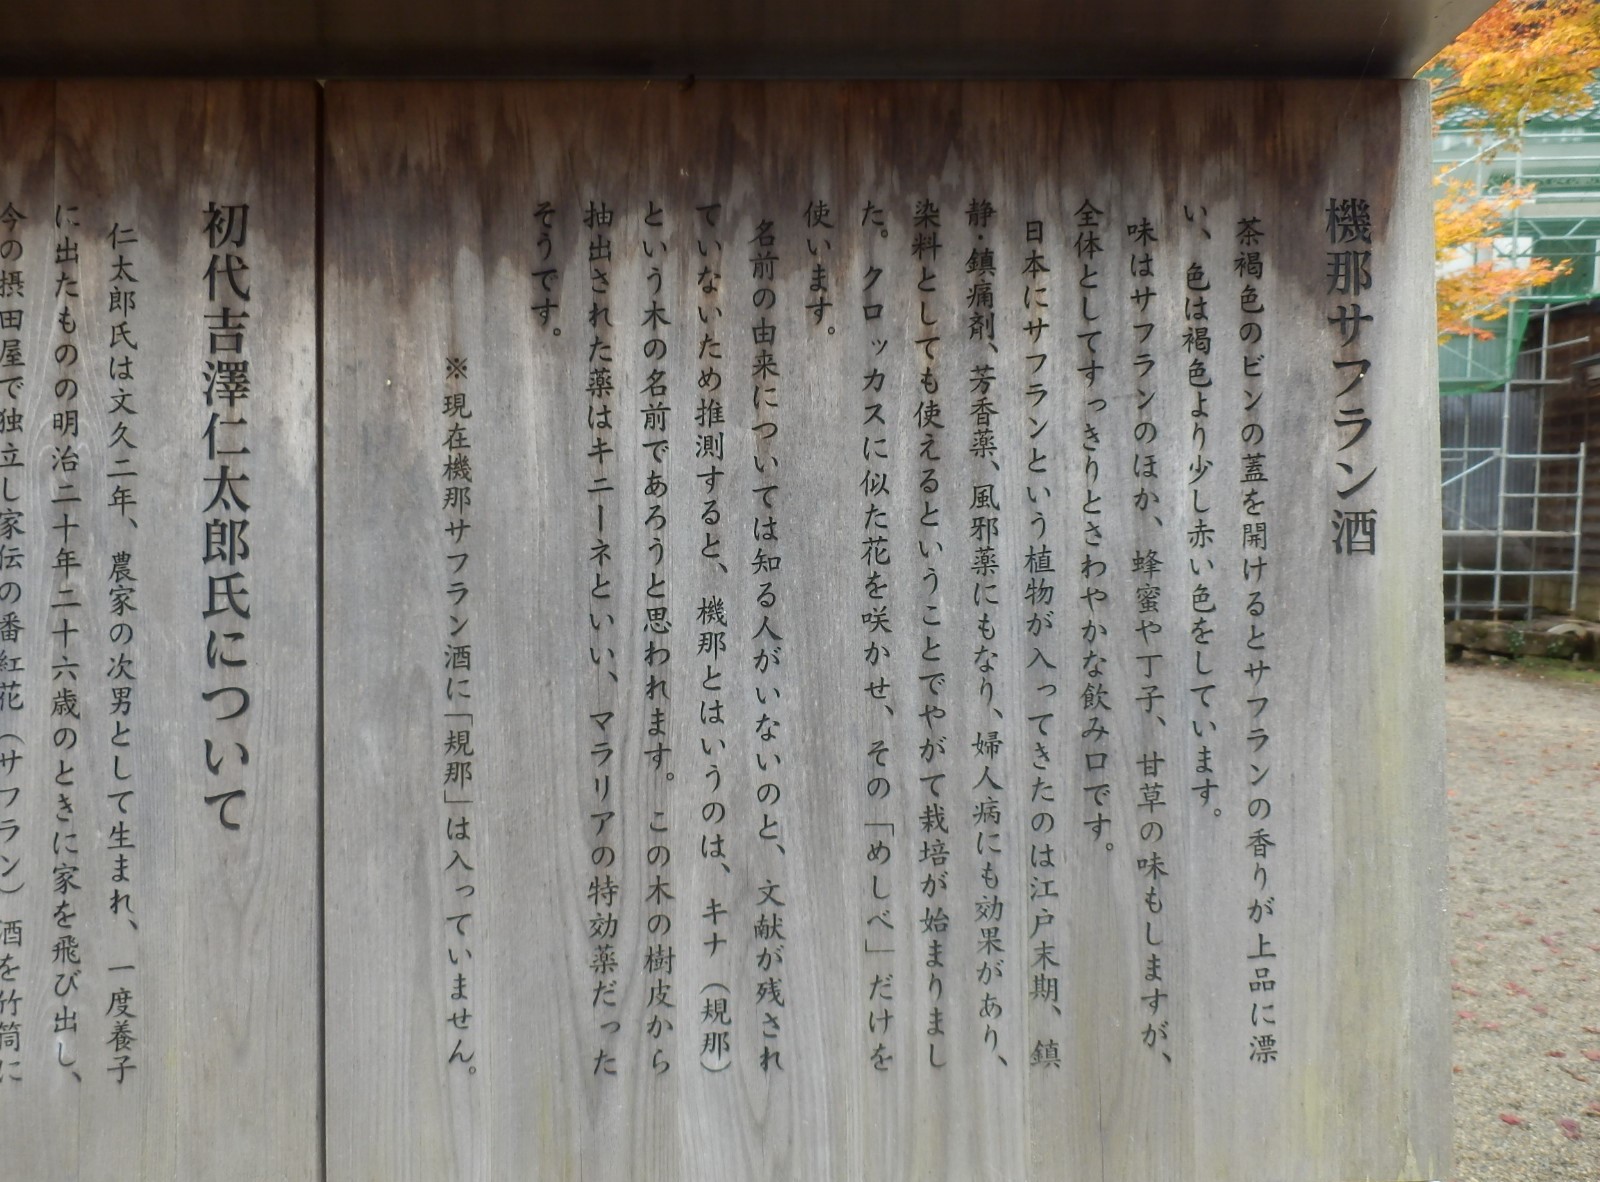 機那サフラン酒
茶褐色のビンの蓋を開けるとサフランの香りが上品に漂
い、色は褐色より少し赤い色をしています。
味はサフランのほか、蜂蜜や丁子、甘草の味もしますが、
全体としてすっきりとさわやかな飲み口です。
日本にサフランという植物が入ってきたのは江戸末期、鎮
静・鎮痛剤、芳香薬、風邪薬にもなり、婦人病にも効果があり、
染料としても使えるということでやがて栽培が始まりまし
た。クロッカスに似た花を咲かせ、その「めしべ」だけを
使います。
名前の由来については知る人がいないのと、文献が残され
ていないため推測すると、機那とはいうのは、キナ（規那）
という木の名前であろうと思われます。この木の樹皮から
抽出された薬はキニーネといい、マラリアの特効薬だった
そうです。
※現在機那サフラン酒に「規那」は入っていません。
初代吉澤仁太郎氏について
仁太郎氏は文久二年、農家の次男として生まれ、一度養子
に出たものの明治二十年二十六歳のときに家を飛び出し、
今の摂田屋で独立し家伝の番紅花（サフラン）酒を竹筒に